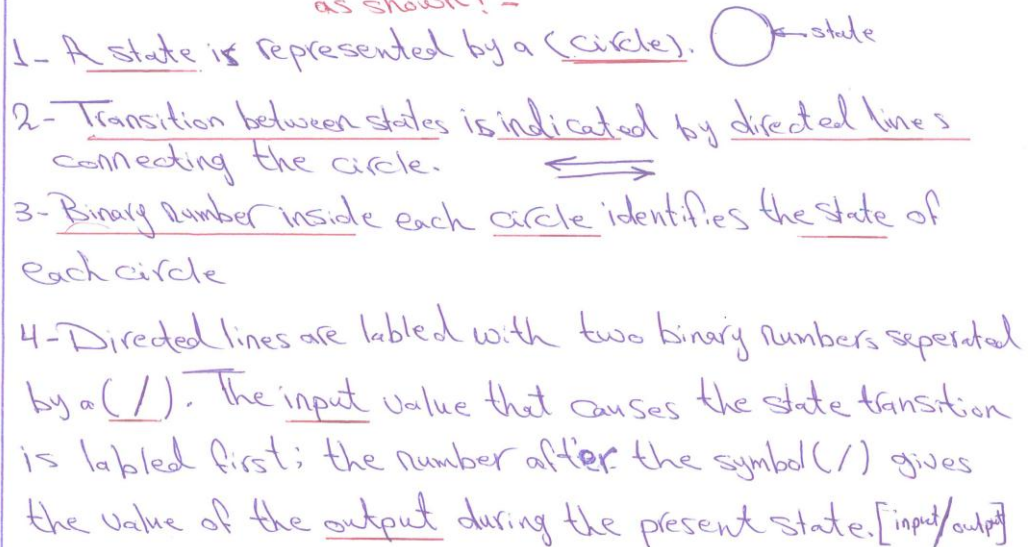 as shown:-
1- A state is represented by a (circle). state
2- Transition between states is indicated by directed lines
connecting the circle.
3- Binary number inside each circle identifies the state of
each circle
4- Directed lines are labled with two binary numbers seperated
by a (/). The input value that causes the state transition
is labled first; the number after the symbol (/) gives
the value of the output during the present state. [input/output]